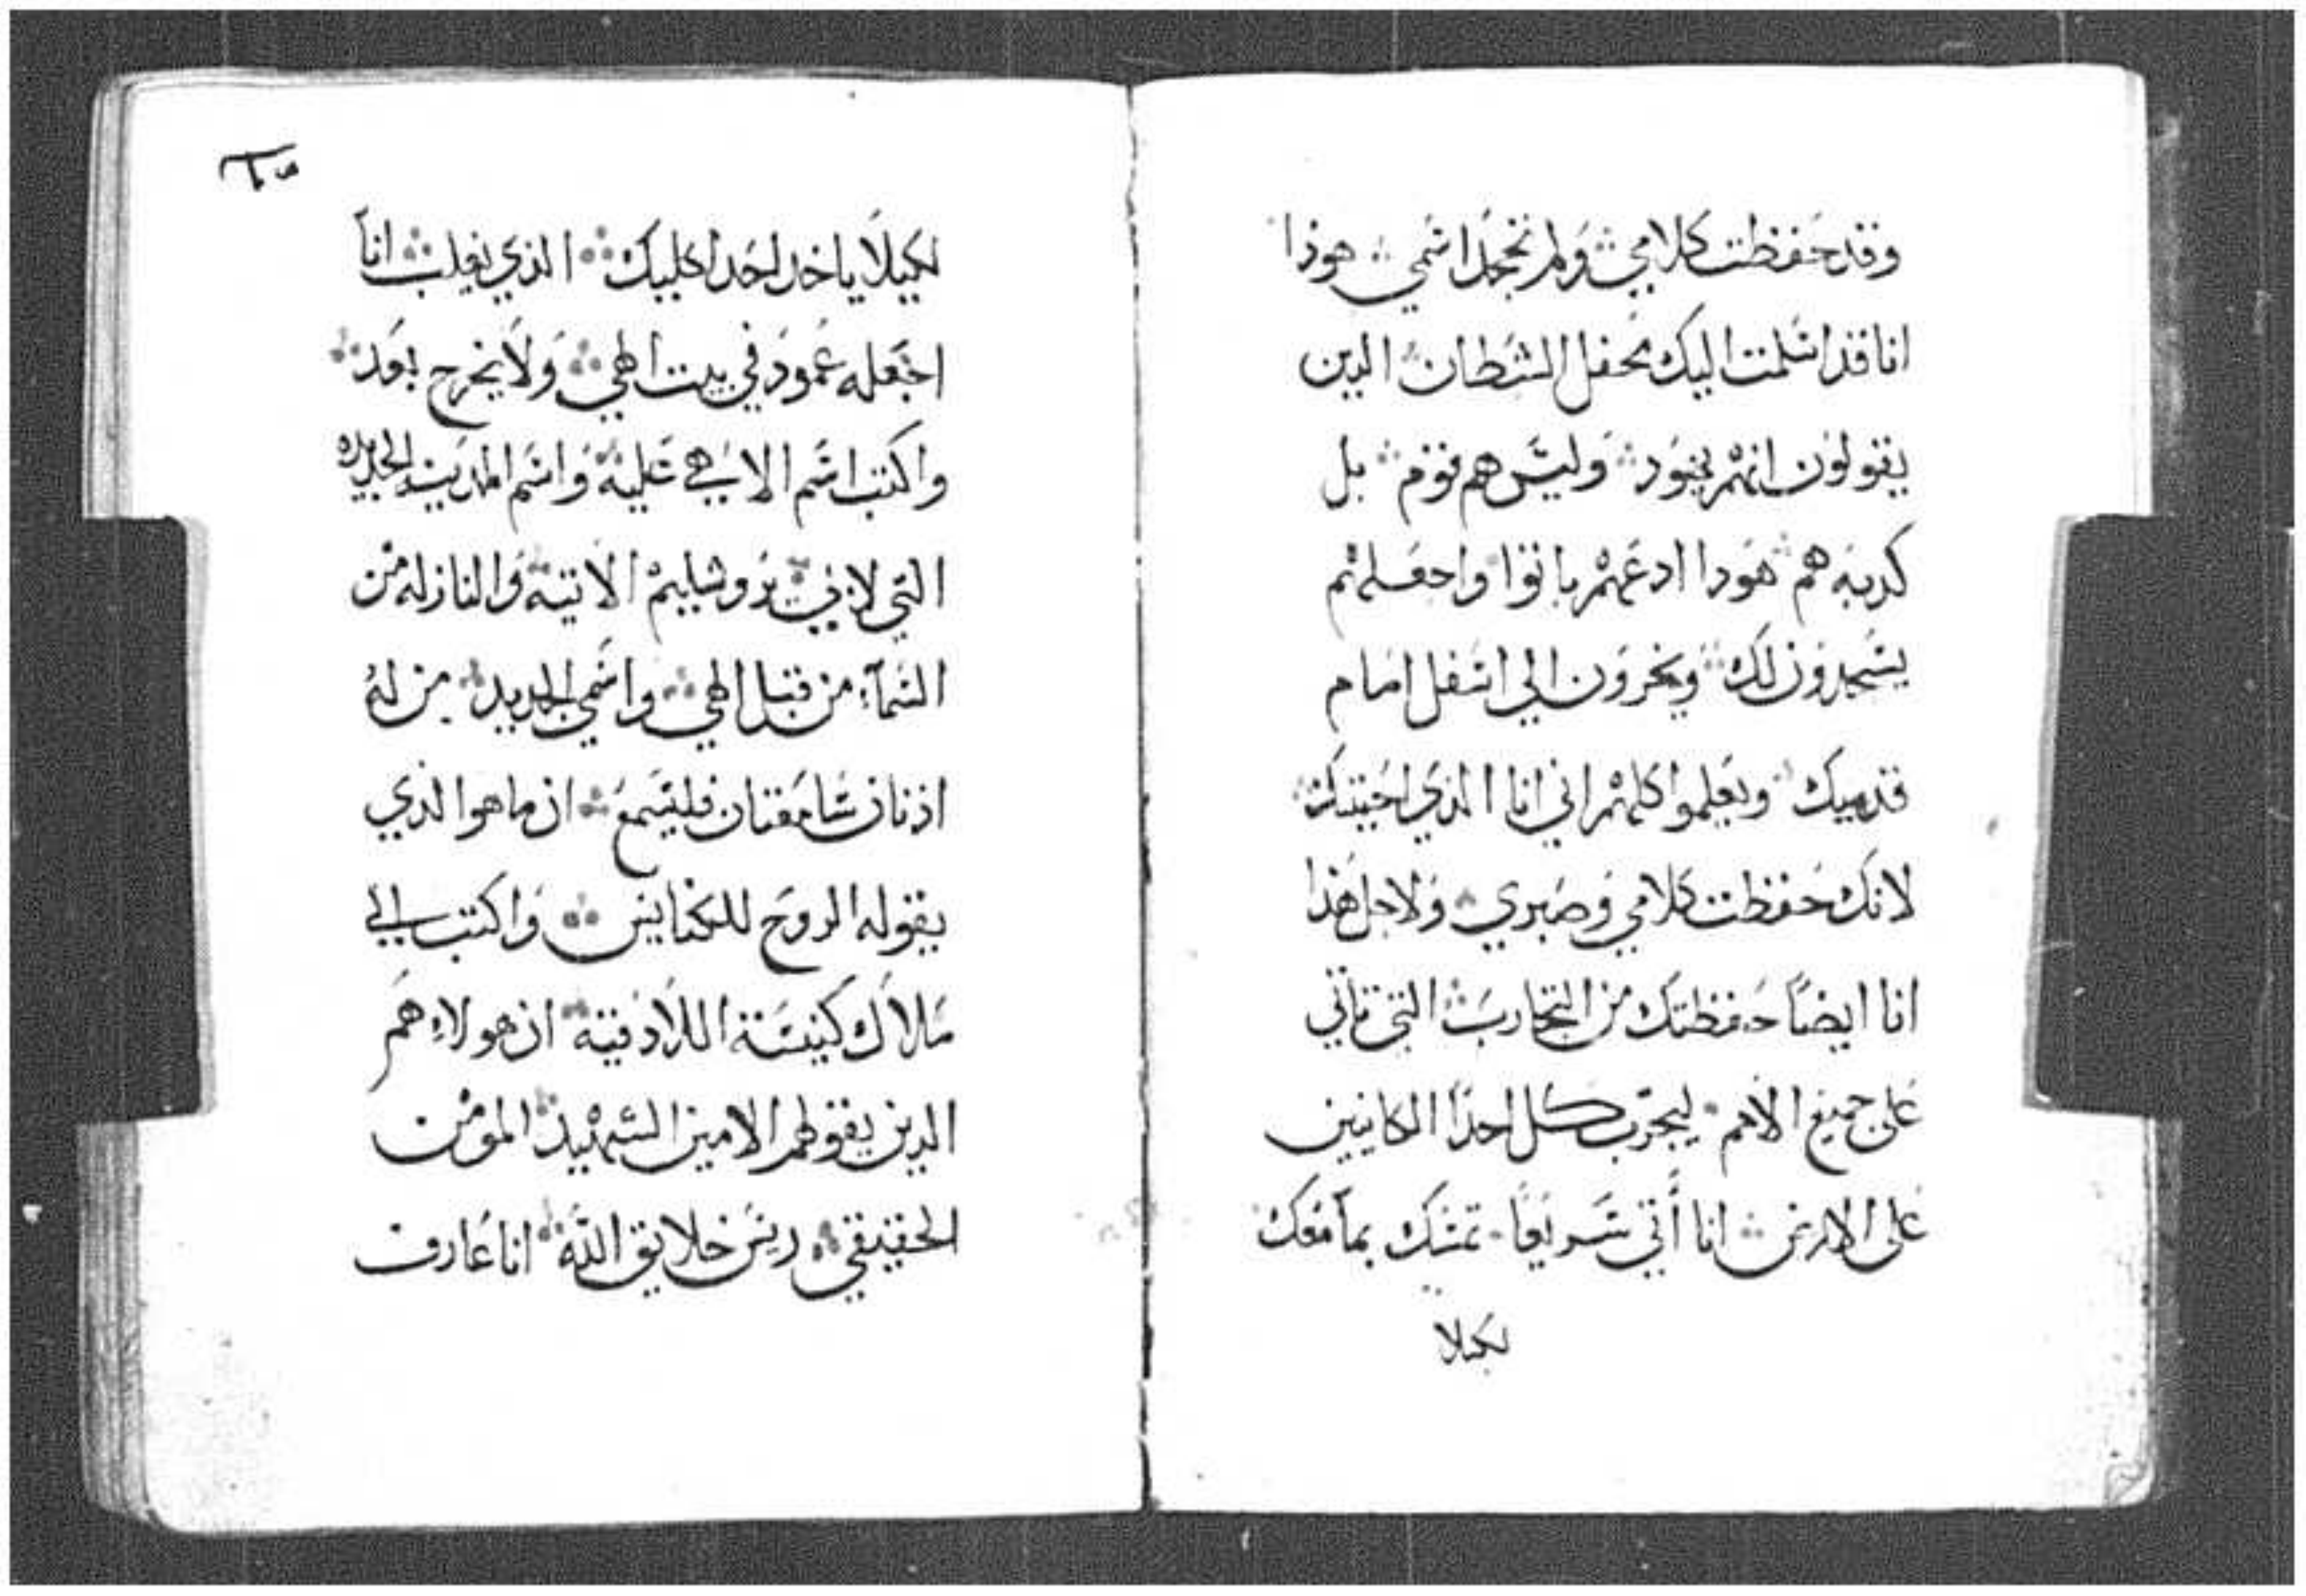 وقد حفظت كلامي ولم تجحد اسمي هوذا
انا قد اسلمت اليك محفل الشطان الدين
يقولون انهم يهود وليس هم قوم بل
كدبه هم هودا ادعهم ياتوا واجعلهم
يسجدون لك ويخرون الي اسفل امام
قدميك ويعلموا كلهم اني انا الذي احببتك
لانك حفظت كلامي وصبري ولاجل هذا
انا ايضاً حفظتك من التجارب التي تاتي
على جميع الامم ليجرب كل احدا الكاينين
على الارض انا أتي سريعاً تمسك بما معك
لكيلا
لكيلا ياخد احد اكليلك الذي يغلب انا
اجعله عمود في بيت الهي ولا يخرج بعد
واكتب اسم الاهي عليه واسم المدينه الجديده
التي لابي يروشليم الاتية والنازله من
السمآء من قبل الهي واسمي الجديد من له
اذنان سامعتان فليسمع ان ما هو الذي
يقوله الروح للكنايس واكتب الي
ملاك كنيسة اللادقية ان هولاء هم
الدين يقولهم الامين الشهيد المومن
الحقيقي ريس خلايق الله انا عارف